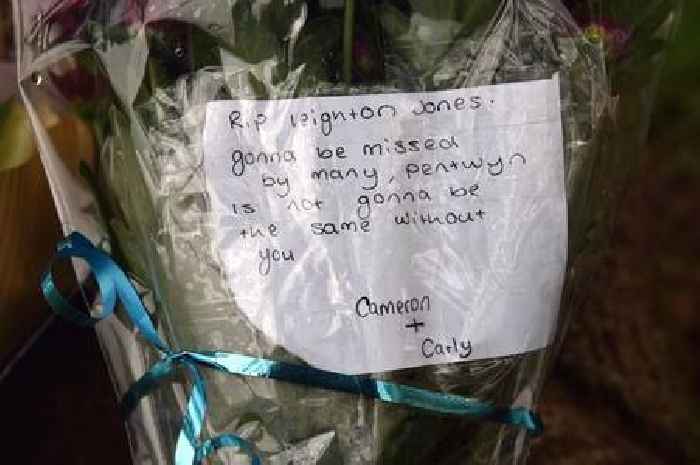 R.I.P leighton Jones.
gonna be missed
by many, pentwyn
is not gonna be
the same without
you
Cameron
+
Carly